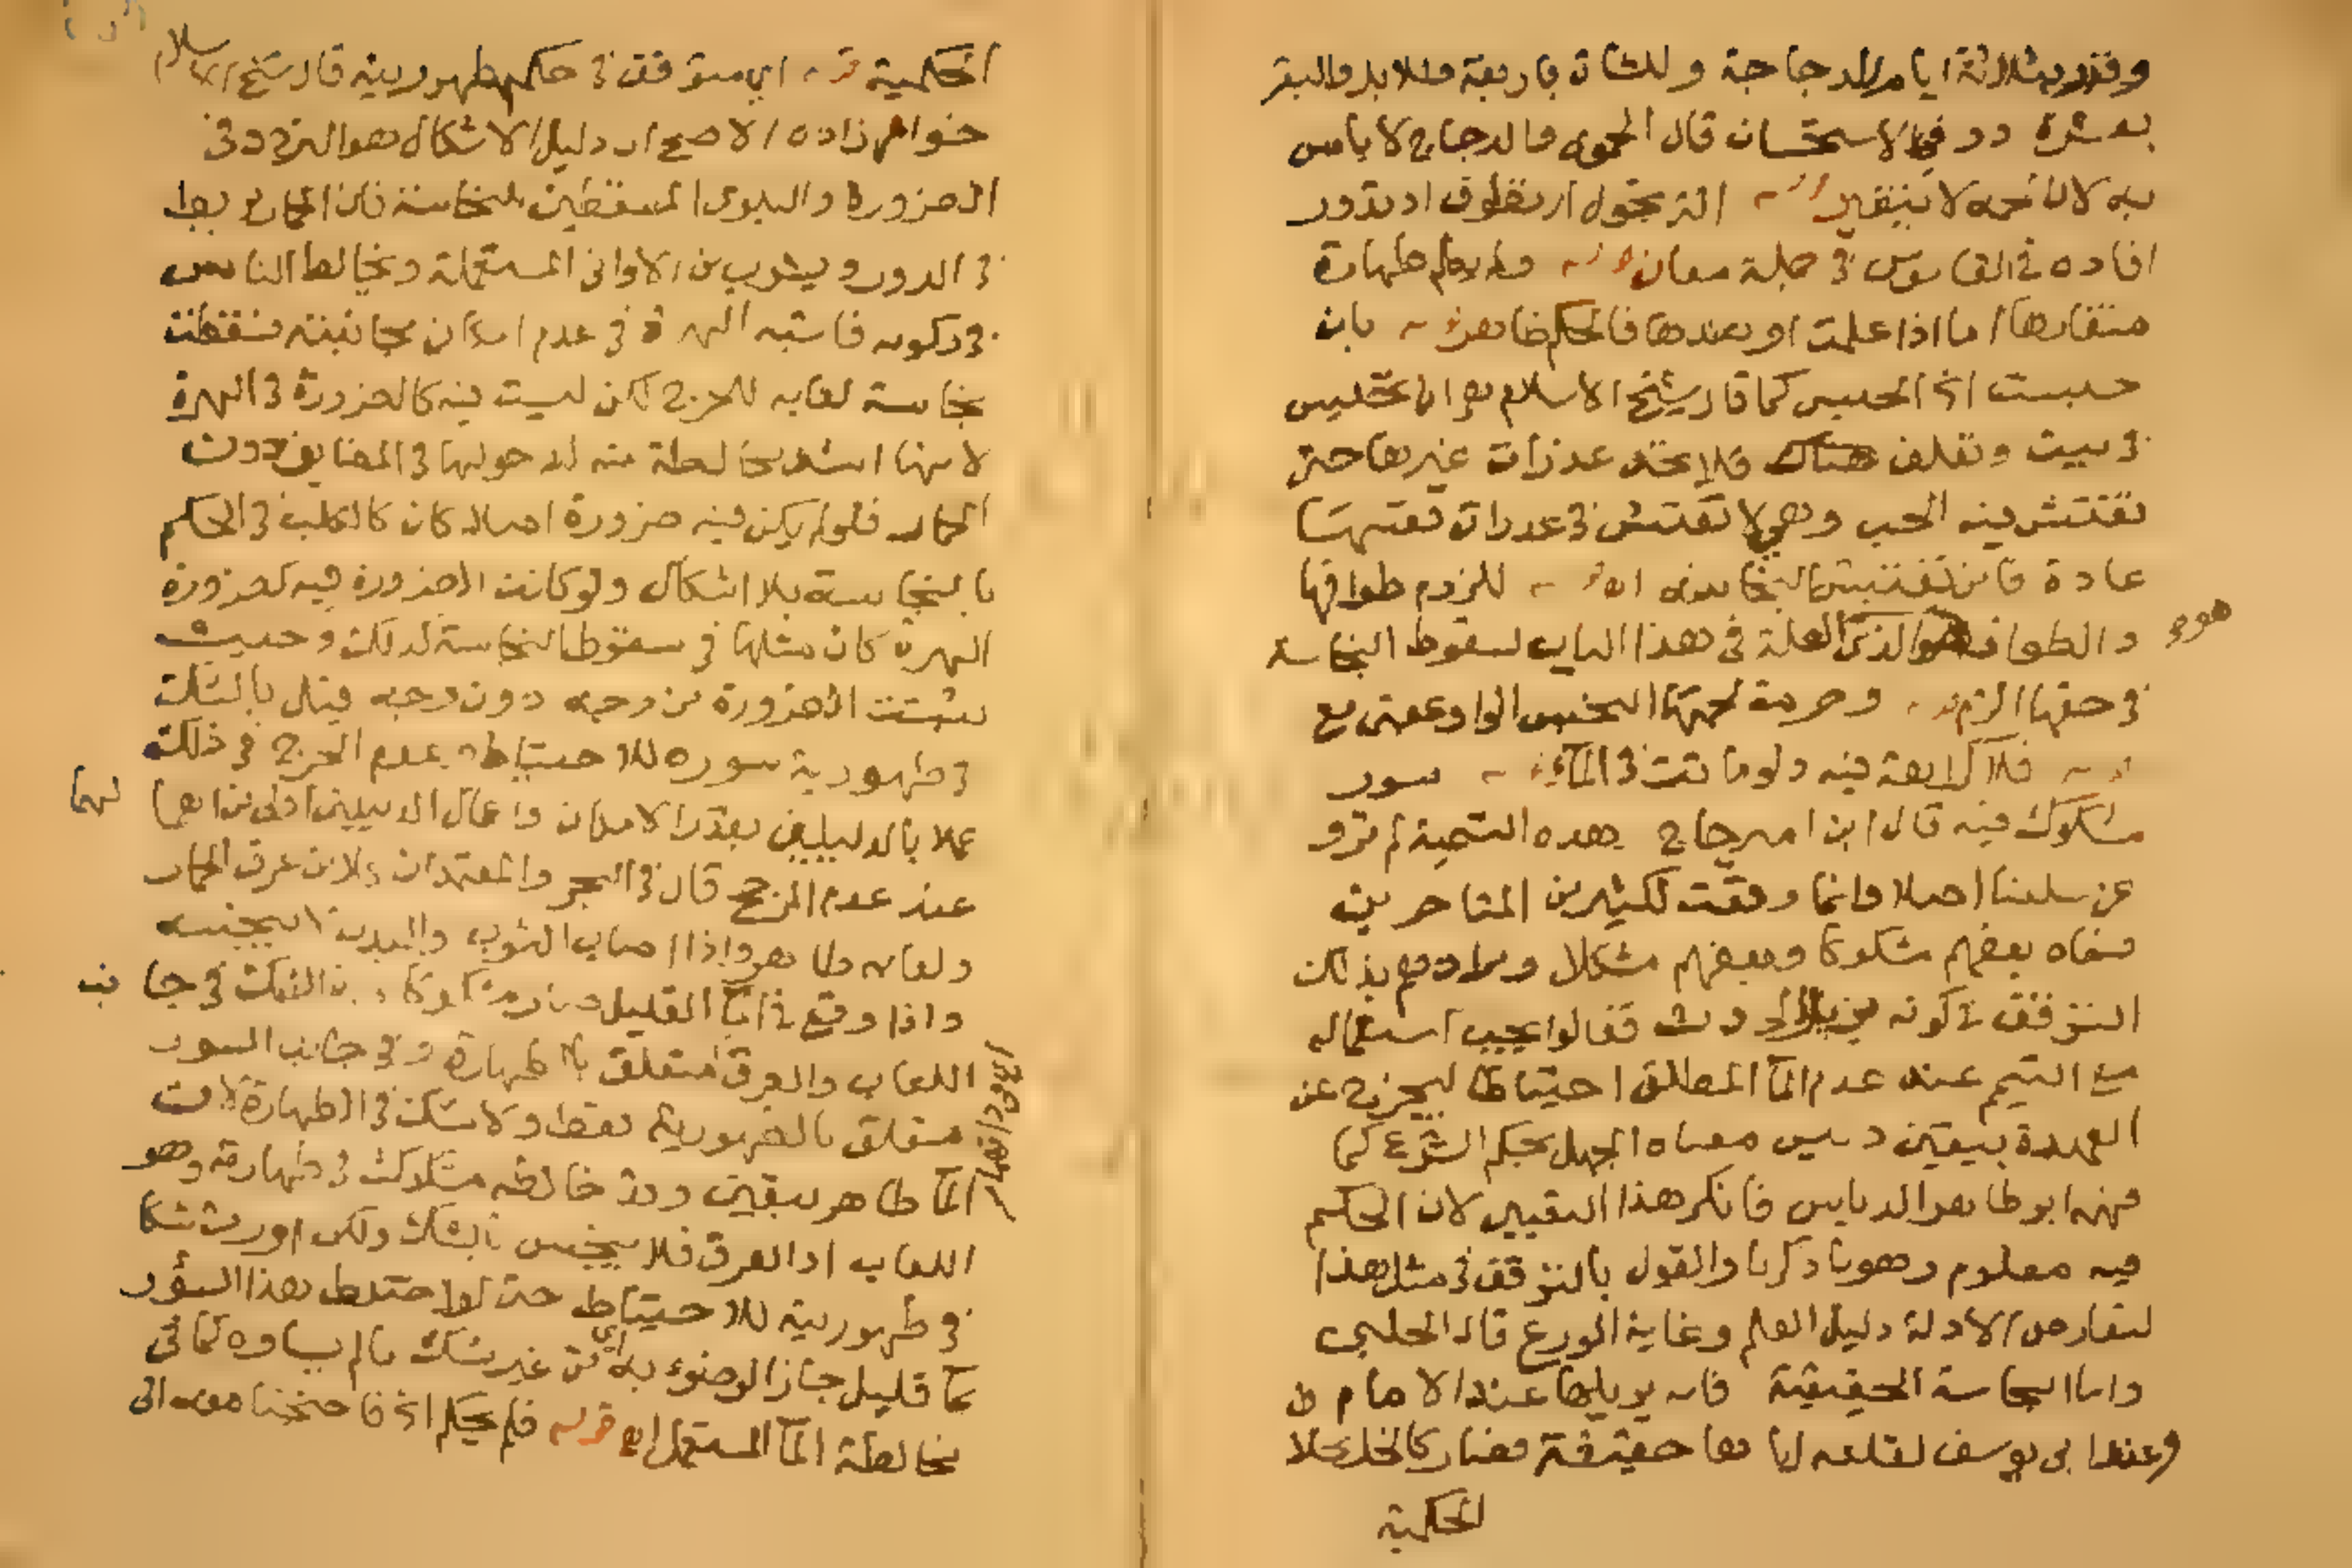 وقدر بثلاثة ايام للدجاجة وللشاة باربعة وللابل والبقر
بعشرة در وفي الاستحسان قال الحموي والدجاج لا باس
به لان لحمه لا يتغير قوله التي تجول اي تطوف او تدور
افاده في القاموس في جملة معان قوله ولم يعلم طهارة
منقارها اما اذا علمت او بضدها فالحكم ظاهر قوله بان
حبست اي الحبس كما قال شيخ الاسلام هو ان تحبس
في بيت وتعلف هناك فلا تجد عذرات غيرها حتى
تفتش فيه الحب وهي لا تفتش في عذرات نفسها
عادة فامن تفتيش النجاسة قوله للزوم طوافها
والطواف هو الذي العلة في هذا الباب لسقوط النجاسة
هو مو
في حقها الزم قوله وحرمة لحمها النجس
قوله فلا كراهة فيه ولو ماتت في الماء قوله سور
مشكوك فيه قال ابن امير حاج هذه التسمية لم ترو
عن سلفنا اصلا وانما وقعت لكثير من المتاخرين
فسماه بعضهم مشكوكا وبعضهم مشكلا ومرادهم بذلك
التوقف في كونه مزيلا للحدث فقالوا يجب استعماله
مع التيمم عند عدم الما المطلق احتياطا ليخرج عن
العهدة بيقين وليس معناه الجهل بحكم الشرع كما
فهمه ابو طاهر الدباس فانكر هذا التعبير لان الحكم
فيه معلوم وهو ما ذكرنا والقول بالتوقف في مثل هذا
لتعارض الادلة دليل العلم وغاية الورع قال الحلبي
واما النجاسة الحقيقية فانه يزيلها عند الامام
وعند ابي يوسف لقلعه اياها حقيقة فصار كالخل بخلا
الحكمية
الحكمية قوله اي متوقف في حكم طهوريته قال شيخ الاسلام
خواهر زاده الاصح ان دليل الاشكال هو التردد في
الضرورة والبلوى المسقطين للنجاسة فان الحمار يربط
في الدور ويشرب من الاواني المستعملة ويخالط الناس
في ركوبه فاشبه الهرة في عدم امكان مجانبته فسقطت
نجاسة لعابه للحرج لكن ليست فيه كالضرورة في الهرة
لانها اشد مخالطة منه لدخولها في المضايق دون
الحمار فلو لم يكن فيه ضرورة اصلا كان كالكلب في الحكم
بالنجاسة بلا اشكال ولو كانت الضرورة فيه كضرورة
الهرة كان مثلها في سقوط النجاسة لذلك وحيث
ثبتت الضرورة من وجه دون وجه قيل بالشك
في طهورية سوره للاحتياط وعدم الحرج في ذلك
عملا بالدليلين بقدر الامكان واعمال الدليلين اولى من اهما
لهما
عند عدم المرجح قال في البحر والمعتمد ان
ولعابه طاهر واذا اصاب الثوب والبدن لا ينجسه
واذا وقع في الما القليل صار مشكوكا في جانب
اللعاب والعرق متعلق بالطهارة وفي جانب السور
متعلق بالطهورية فقط ولا شك في الطهارة لان
الما طاهر بيقين وقد خالطه مشكوك في طهارته وهو
اللعاب او العرق فلا ينجس بالشك ولكن اورث شكا
في طهوريته للاحتياط حتى لو اختلط هذا السؤر
بما قليل جاز الوضوء به من غير شك ما لم يساوه كما في
مخالطة الما المستعمل اهـ قوله فلم يحكم اي